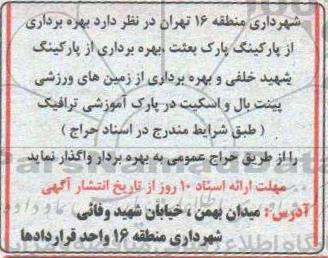 شهرداری منطقه ۱۶ تهران در نظر دارد بهره برداری
از پارکینگ پارک بعثت ،بهره برداری از پارکینگ
شهید خلفی و بهره برداری از زمین های ورزشی
پینت بال و اسکیت در پارک آموزشی ترافیک
( طبق شرایط مندرج در اسناد حراج )
را از طریق حراج عمومی به بهره بردار واگذار نماید
مهلت ارائه اسناد ۱۰ روز از تاریخ انتشار آگهی
آدرس : میدان بهمن ، خیابان شهید وفائی،
شهرداری منطقه ۱۶ واحد قراردادها